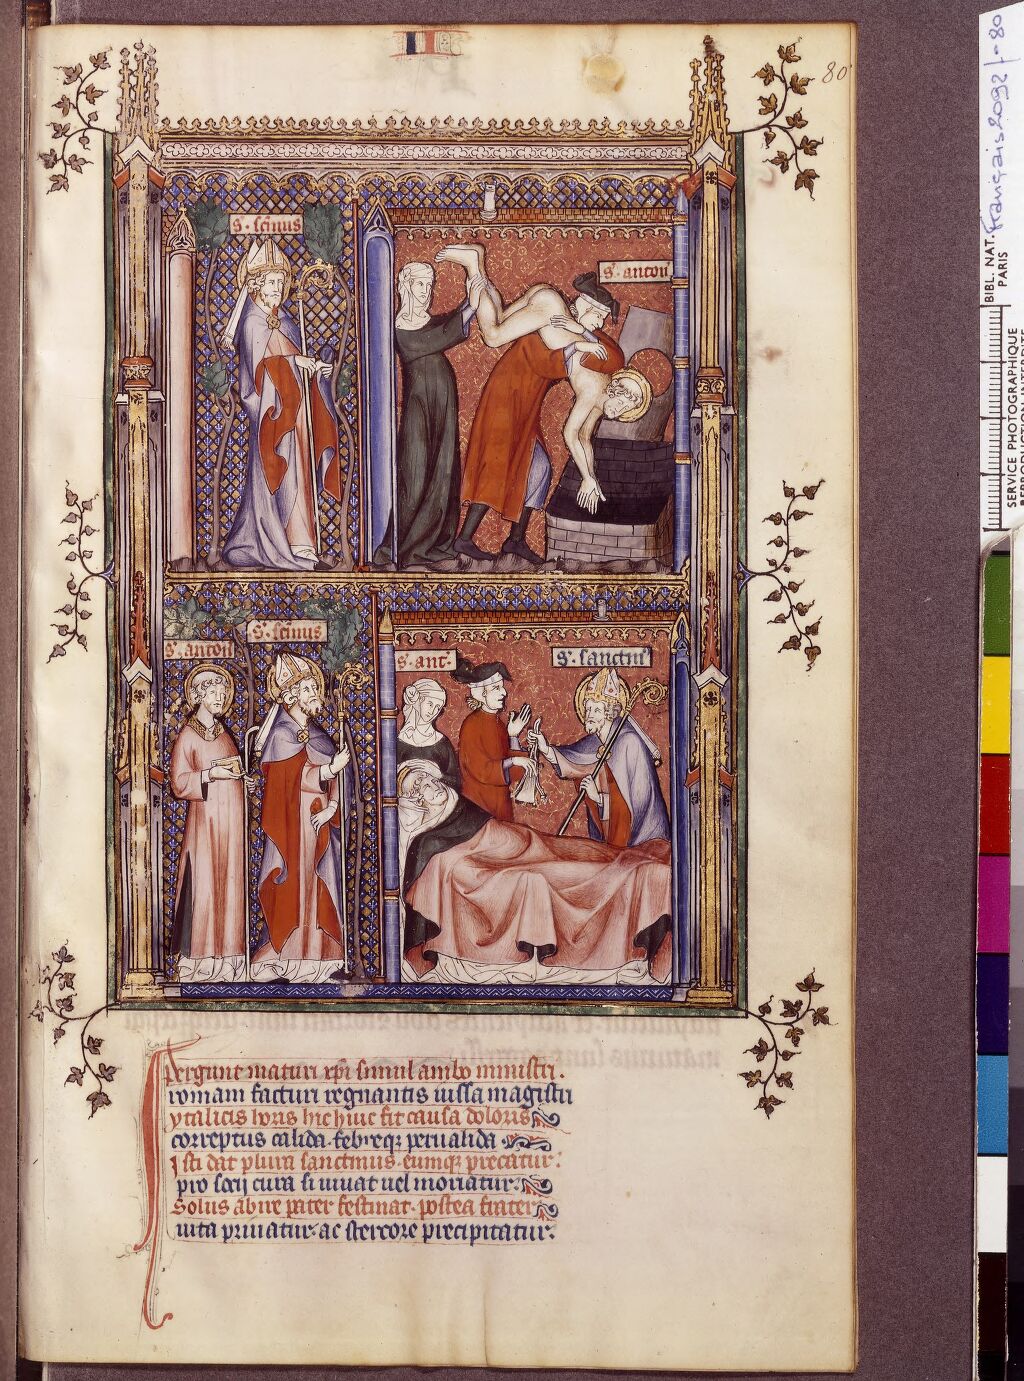 80
S. scinus
S. anton
S. anton
S. scinus
S. ant.
S. sanctin
Pergunt maturi xpi simul ambo ministri.
romam facturi regnantis iussa magistri
ytalicis horis hic hinc fit causa doloris
correptus calida. febreq; perualida.
Isti dat plura sanctinus. eumq; precatur.
pro socij cura si uiuat uel moriatur.
Solus abire pater festinat. postea frater
uita priuatur. ac stercore precipitatur.
BIBL. NAT.
PARIS
Français 2092 f-80
SERVICE PHOTOGRAPHIQUE